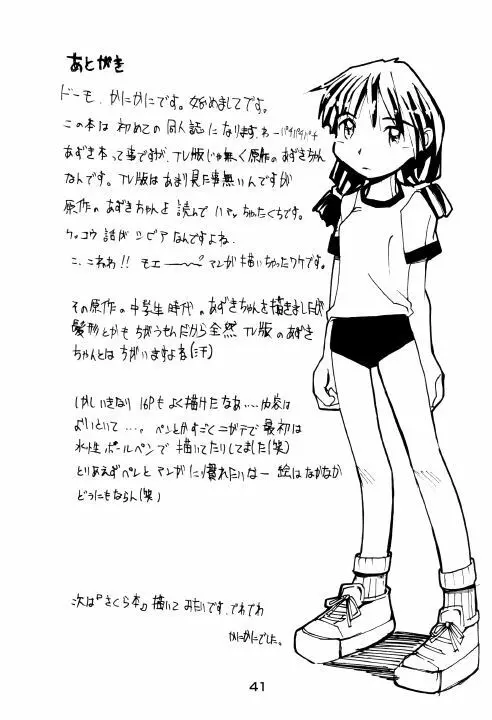 あとがき
ドーモ、かにかにです。始めましてです。
この本は初めての同人誌になりますねーパチパチパチ
あずき本って事ですが、TV版じゃ無く原作のあずきちゃん
なんです。TV版はあまり見た事無いんですが
原作のあずきちゃんを読んでハマっちゃったくちです。
ケッコウ話がシビアなんですよね。
こ、これわ!! モエ〜〜 マンガ描いちゃったワケです。
その原作の中学生時代のあずきちゃんを描きましたが
髪形とかもちがうもんだから全然TV版のあずき
ちゃんとはちがいますよね(汗)
しかしいきなり16Pもよく描けたなあ……内容は
よいといて…。ペンとかすごくニガテで最初は
水性ボールペンで描いてたりしてました(笑)
とりあえずペンとマンガに慣れたいなー 絵はなかなか
どうにもならん(笑)
次は『さくら本』描いてみたいです。でわでわ
かにかにでした。
41